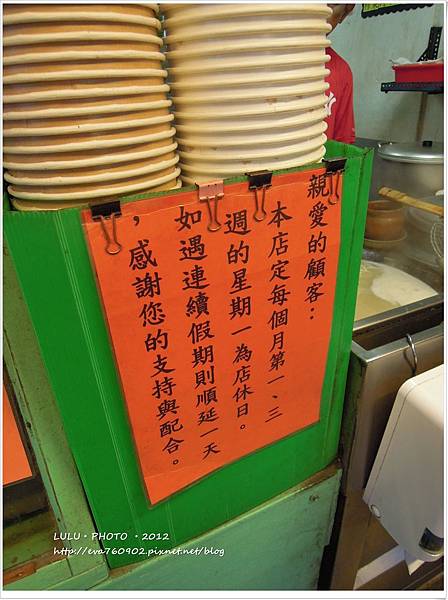 親愛的顧客：
本店定每個月第一、三
週的星期一為店休日。
如遇連續假期則順延一天
，感謝您的支持與配合。
LULU・PHOTO・2012
http://eva760902.pixnet.net/blog